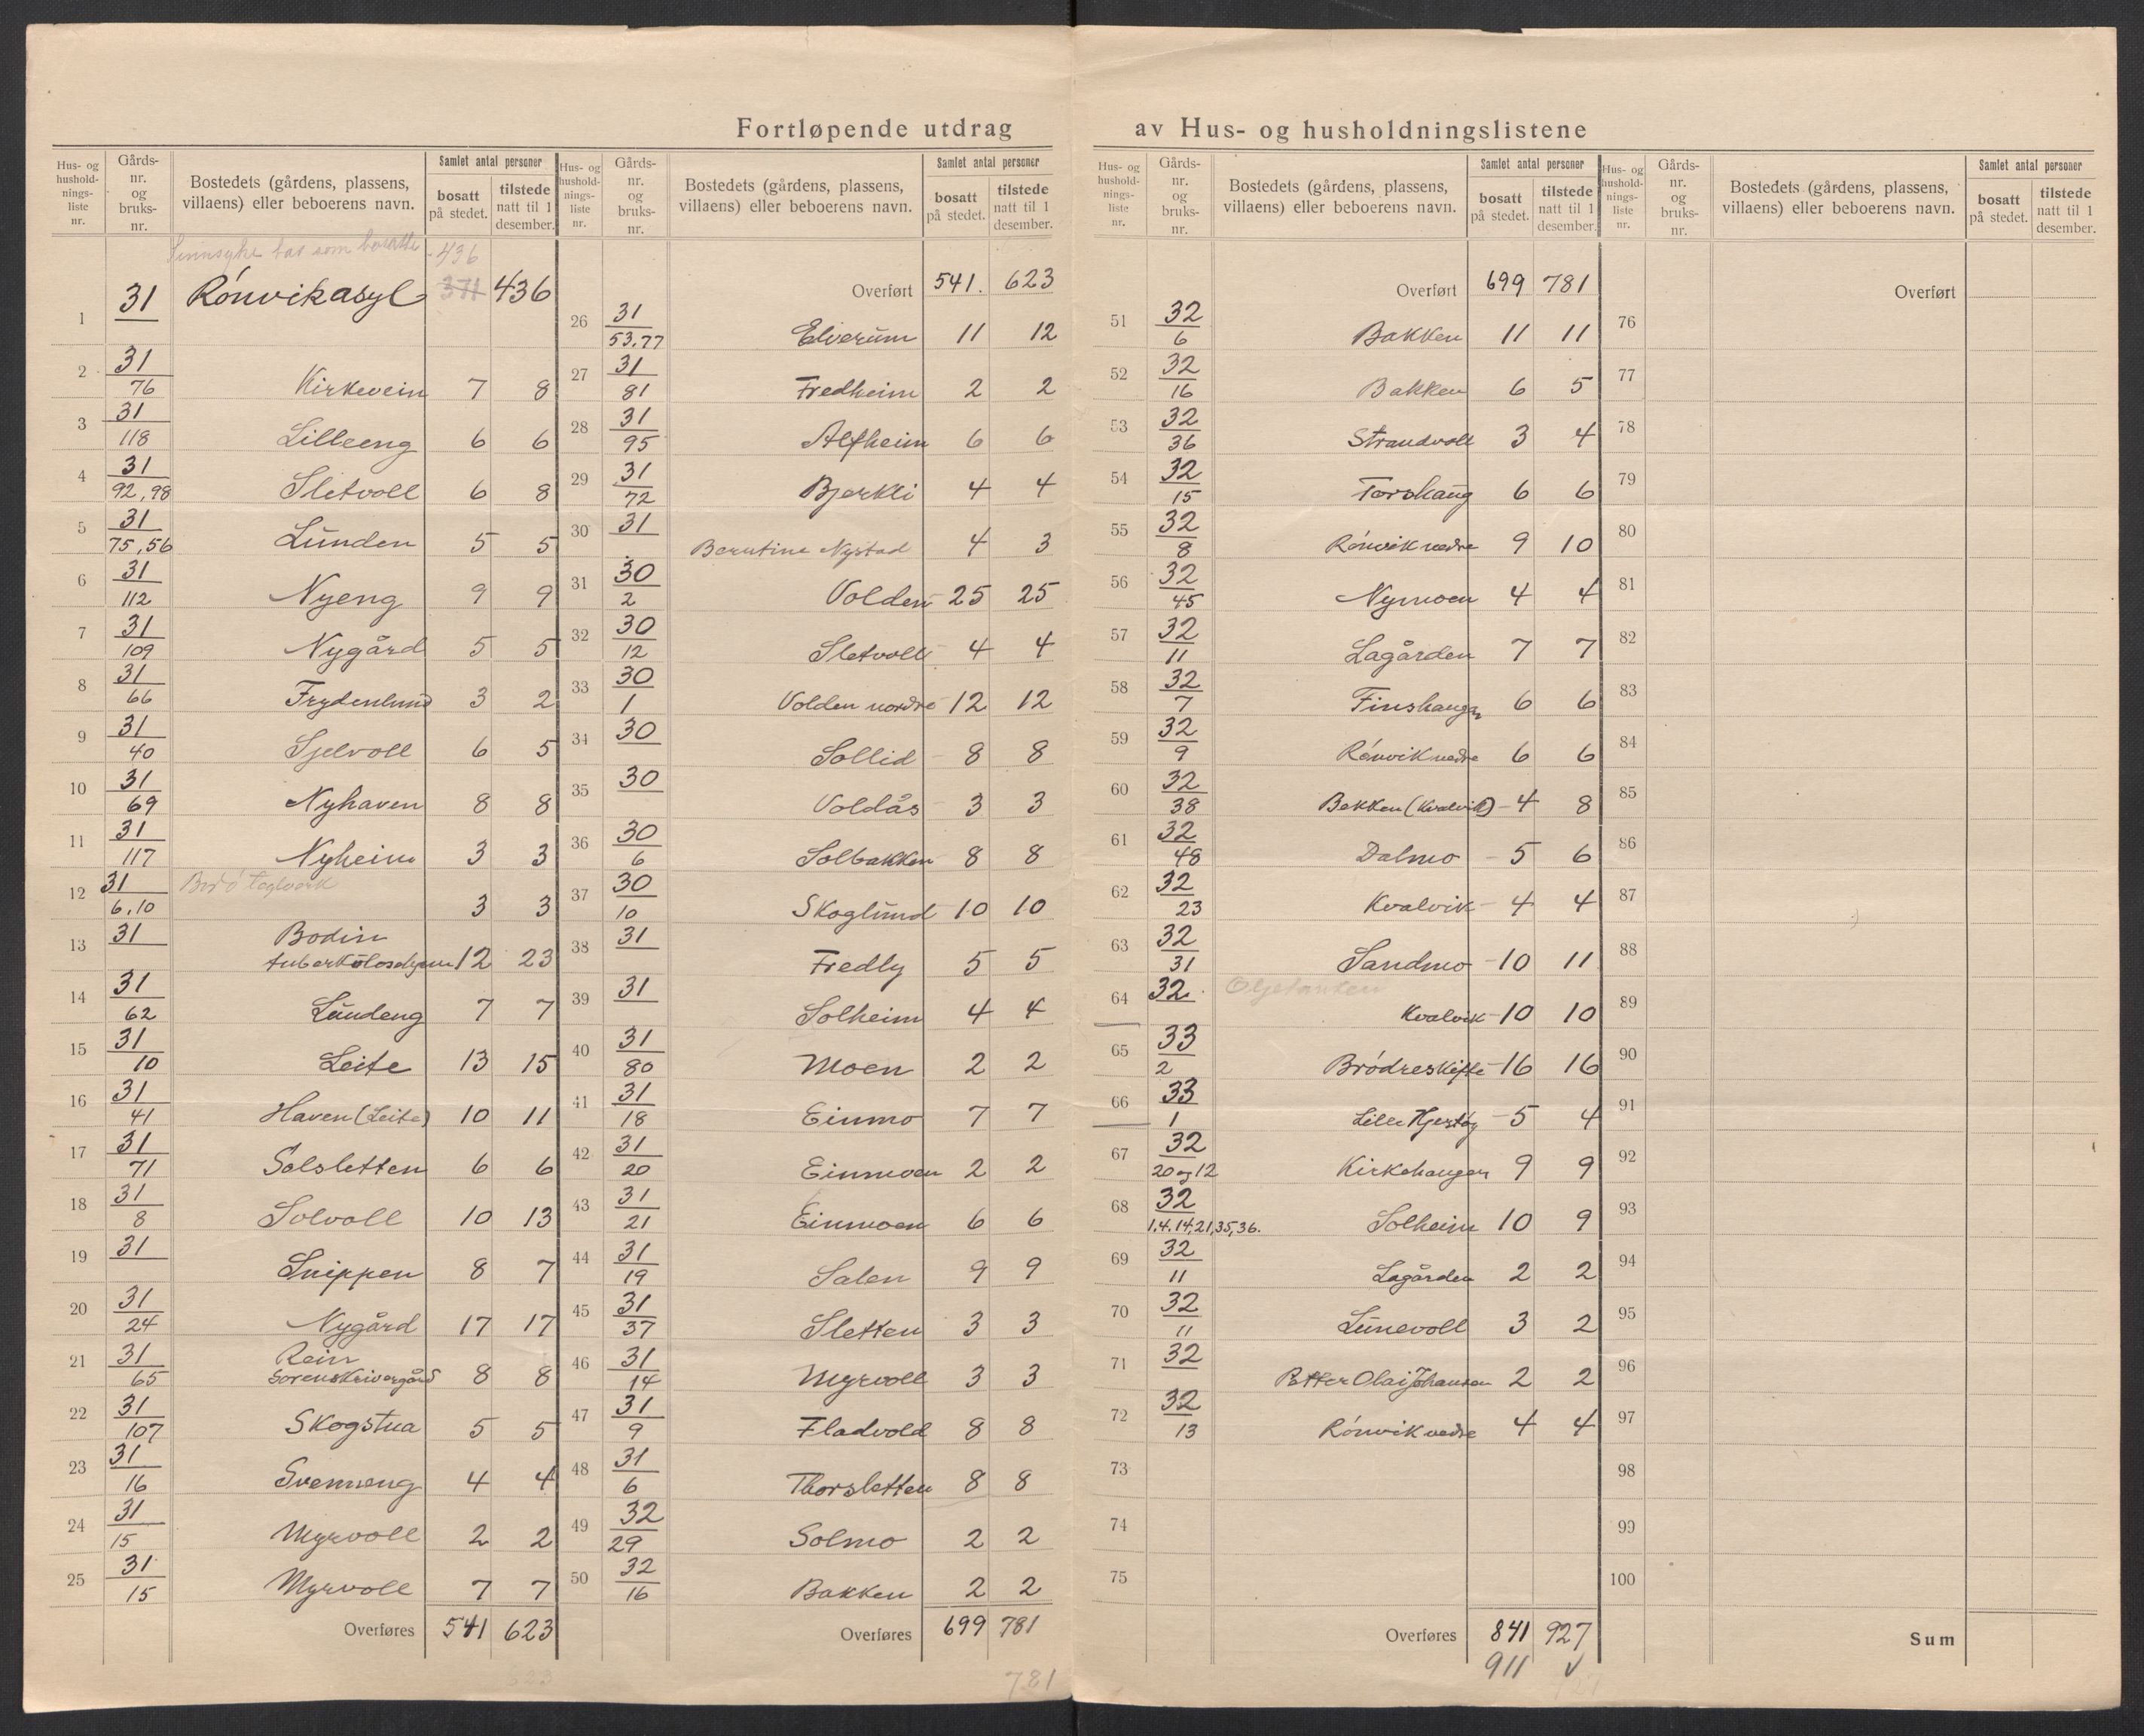 Fortløpende utdrag av Hus- og husholdningslistene
Hus- og hushold-nings-liste nr. | Gårds-nr. og bruks-nr. | Bostedets (gårdens, plassens, villaens) eller beboerens navn. | Samlet antal personer | bosatt på stedet. | tilstede natt til 1 desember.
Sinnsyke tat som bosatte 436
1 31 Rónvikasyl 371 436
2 31/76 Kirkevein 7 8
3 31/118 Lilleeng 6 6
4 31/92,98 Sletvoll 6 8
5 31/75,56 Lunden 5 5
6 31/112 Nyeng 9 9
7 31/109 Nygård 5 5
8 31/66 Frydenlund 3 2
9 31/40 Sjelvoll 6 5
10 31/69 Nyhaven 8 8
11 31/117 Nyheim 3 3
12 31/6,10 Bodø teglverk 3 3
13 31 Bodin
tuberkulosehjem 12 23
14 31/62 Lundeng 7 7
15 31/10 Leite 13 15
16 31/41 Haven (Leite) 10 11
17 31/71 Solsletten 6 6
18 31/8 Solvoll 10 13
19 31 Snippen 8 7
20 31/24 Nygård 17 17
21 31/65 Rein
Sorenskrivergård 8 8
22 31/107 Skogstua 5 5
23 31/16 Svenneng 4 4
24 31/15 Myrvoll 2 2
25 31/15 Myrvoll 7 7
Overføres 541 623
623
Hus- og hushold-nings-liste nr. | Gårds-nr. og bruks-nr. | Bostedets (gårdens, plassens, villaens) eller beboerens navn. | Samlet antal personer | bosatt på stedet. | tilstede natt til 1 desember.
Overført 541. 623
26 31/53.77 Elverum 11 12
27 31/81 Fredheim 2 2
28 31/95 Alfheim 6 6
29 31/72 Bjerkli 4 4
30 31 Berntine Nystad 4 3
31 30/2 Volden 25 25
32 30/12 Sletvoll 4 4
33 30/1 Volden nordre 12 12
34 30 Sollid 8 8
35 30 Voldås 3 3
36 30/6 Solbakken 8 8
37 30/10 Skoglund 10 10
38 31 Fredly 5 5
39 31 Solheim 4 4
40 31/80 Moen 2 2
41 31/18 Einmo 7 7
42 31/20 Einmoen 2 2
43 31/21 Einmoen 6 6
44 31/19 Salen 9 9
45 31/37 Sletten 3 3
46 31/14 Myrvoll 3 3
47 31/9 Fladvold 8 8
48 31/6 Thorsletten 8 8
49 32/29 Solmo 2 2
50 32/16 Bakken 2 2
Overføres 699 781
781
Hus- og hushold-nings-liste nr. | Gårds-nr. og bruks-nr. | Bostedets (gårdens, plassens, villaens) eller beboerens navn. | Samlet antal personer | bosatt på stedet. | tilstede natt til 1 desember.
Overført 699 781
51 32/6 Bakken 11 11
52 32/16 Bakken 6 5
53 32/36 Strandvoll 3 4
54 32/15 Torshaug 6 6
55 32/8 Rónvik nedre 9 10
56 32/45 Nymoen 4 4
57 32/11 Lagården 7 7
58 32/7 Finshaugen 6 6
59 32/9 Rónvik nedre 6 6
60 32/38 Bekken (Kvalvik) 4 8
61 32/48 Dalmo 5 6
62 32/23 Kvalvik 4 4
63 32/31 Sandmo 10 11
64 32 Oljetanken
Kvalvik 10 10
65 33/2 Bródreskifte 16 16
66 33/1 Lille Hjertøy 5 4
67 32/20 og 12 Kirkehaugen 9 9
68 32/1.4.14,21,35,36. Solheim 10 9
69 32/11 Lagården 2 2
70 32/11 Lunevoll 3 2
71 32 Petter Olai Johansen 2 2
72 32/13 Rónvik nedre 4 4
73
74
75
Overføres 841 927
911 ✓
Hus- og hushold-nings-liste nr. | Gårds-nr. og bruks-nr. | Bostedets (gårdens, plassens, villaens) eller beboerens navn. | Samlet antal personer | bosatt på stedet. | tilstede natt til 1 desember.
Overført
76
77
78
79
80
81
82
83
84
85
86
87
88
89
90
91
92
93
94
95
96
97
98
99
100
Sum